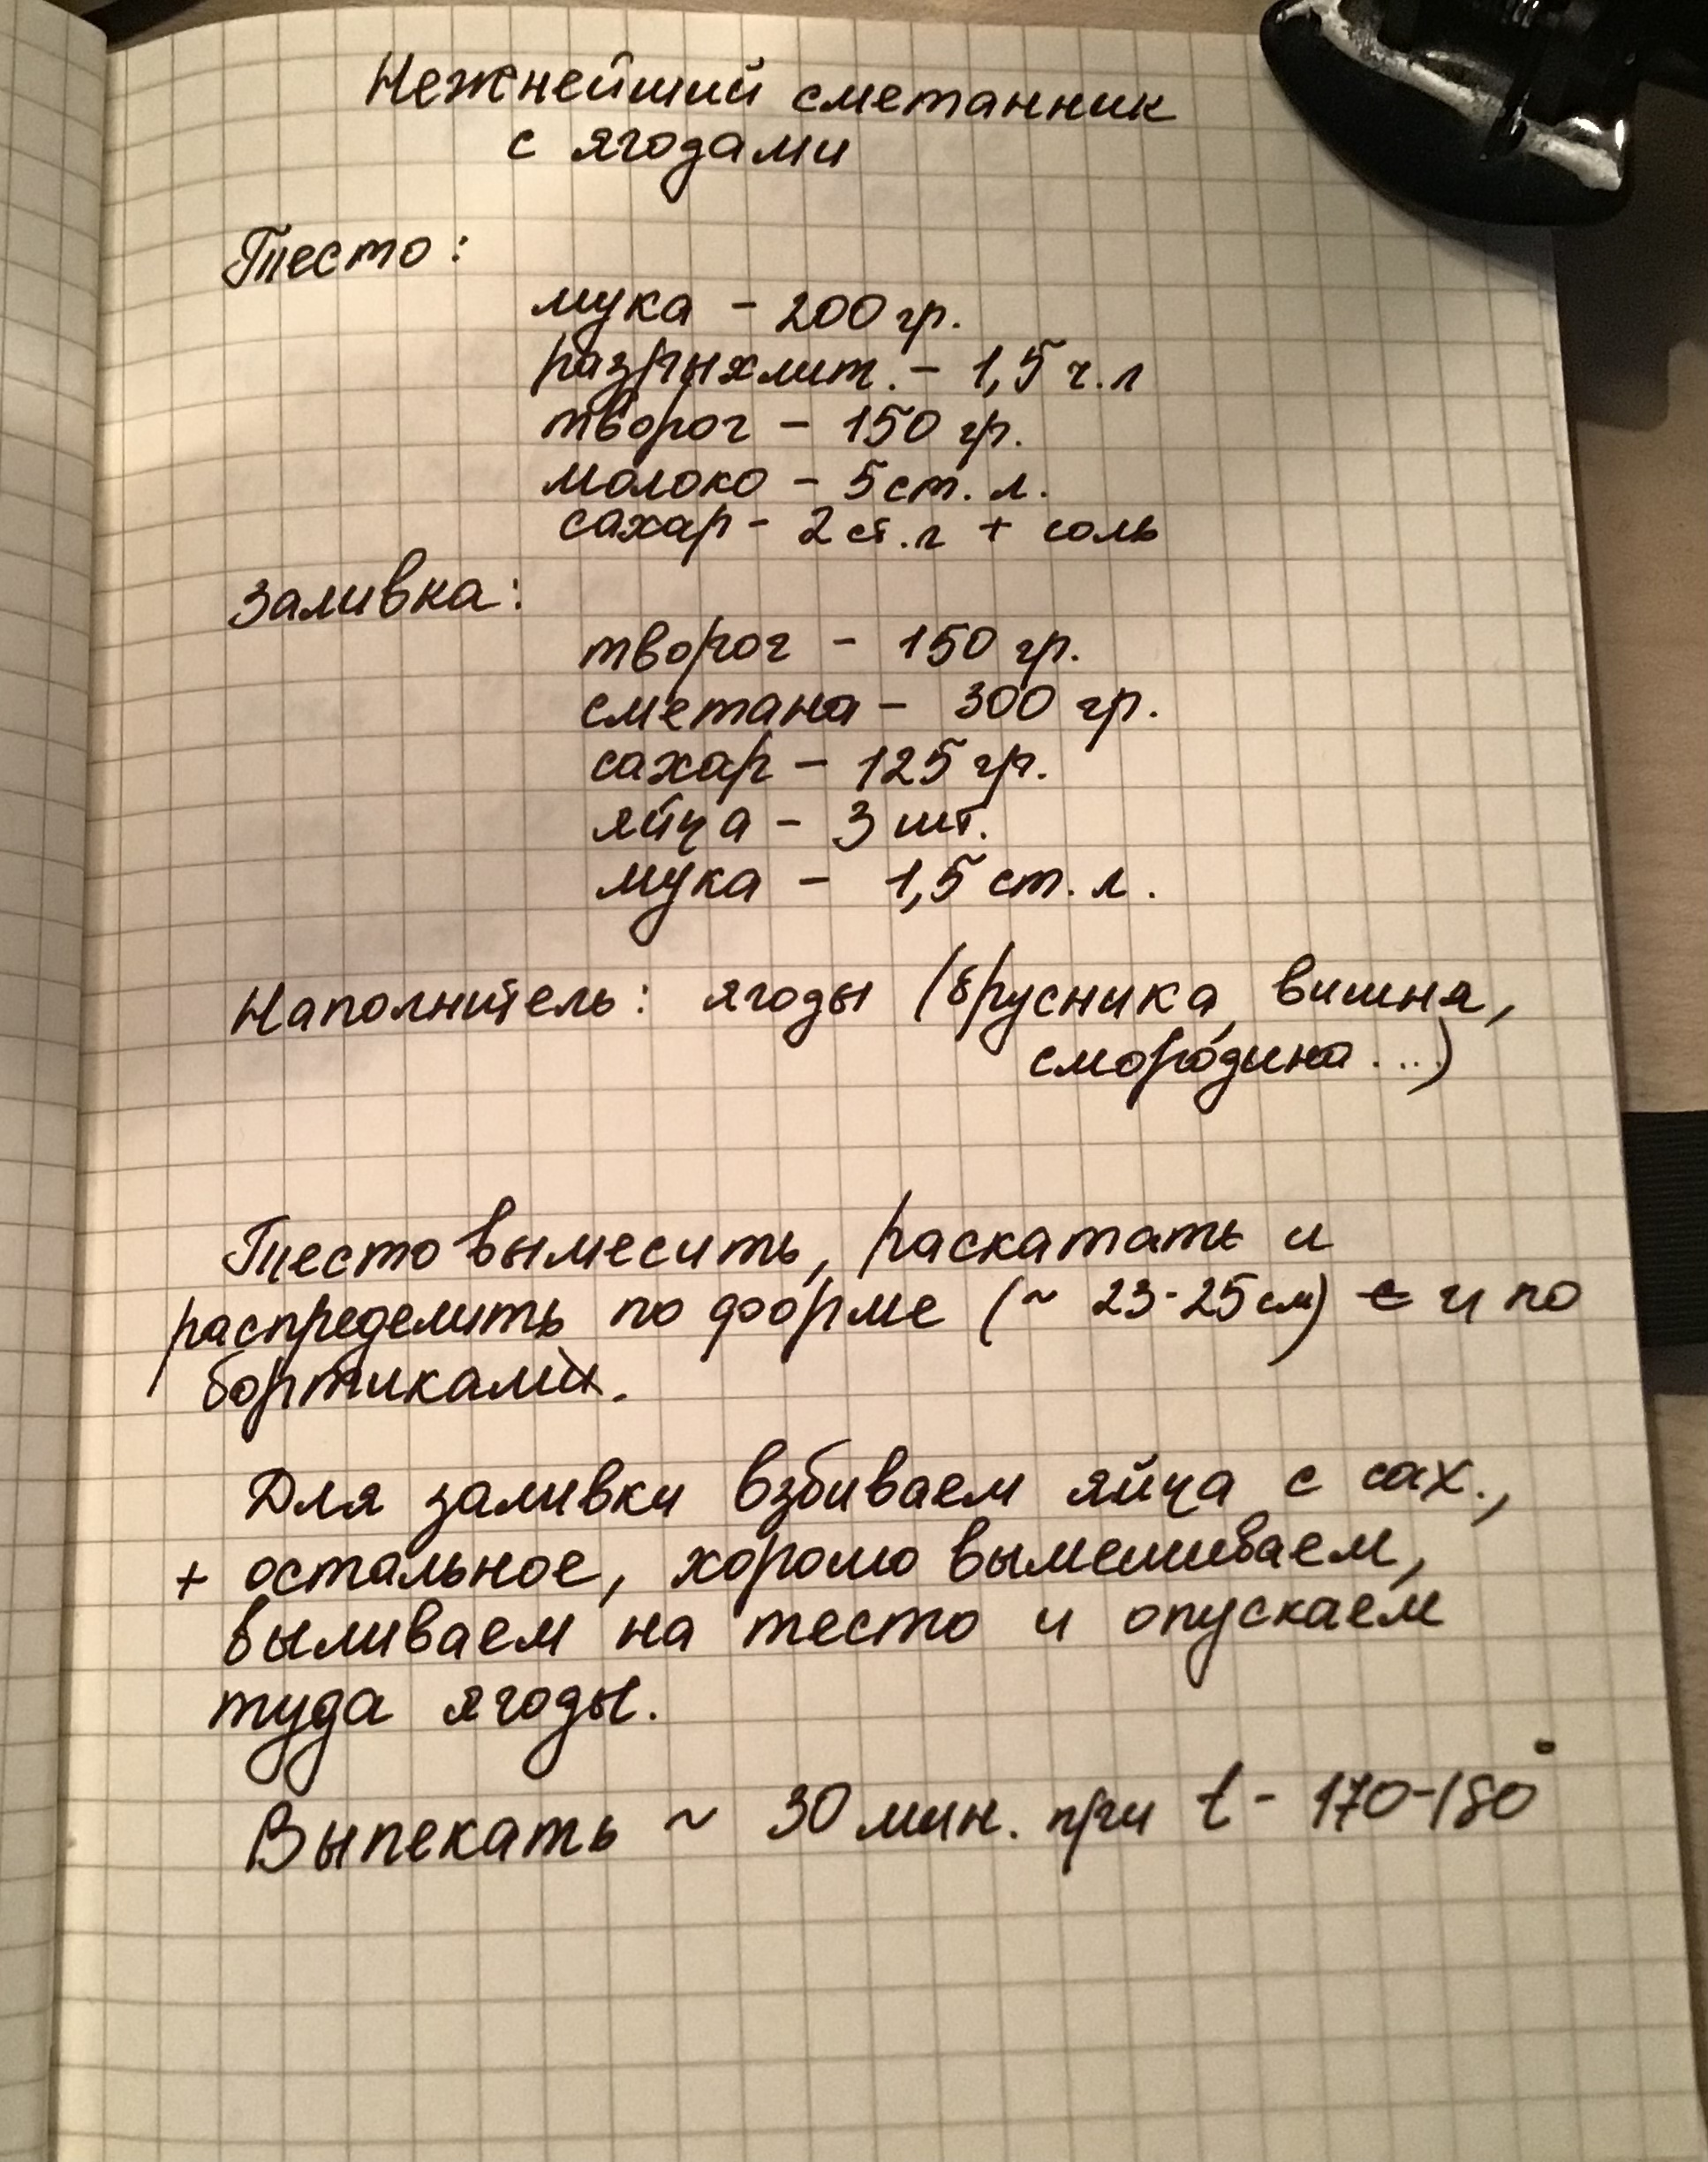 Нежнейший сметанник
с ягодами
Тесто:
мука - 200 гр.
разрыхлит. - 1,5 ч.л
творог - 150 гр.
молоко - 5 ст. л.
сахар - 2 ст.л + соль
Заливка:
творог - 150 гр.
сметана - 300 гр.
сахар - 125 гр.
яйца - 3 шт.
мука - 1,5 ст. л.
Наполнитель: ягоды (брусника, вишня,
смородина ...)
Тесто вымесить, раскатать и
распределить по форме (~ 23-25 см) и по
бортикам.
Для заливки взбиваем яйца с сах.,
+ остальное, хорошо вымешиваем,
выливаем на тесто и опускаем
туда ягоды.
Выпекать ~ 30 мин. при t - 170-180°